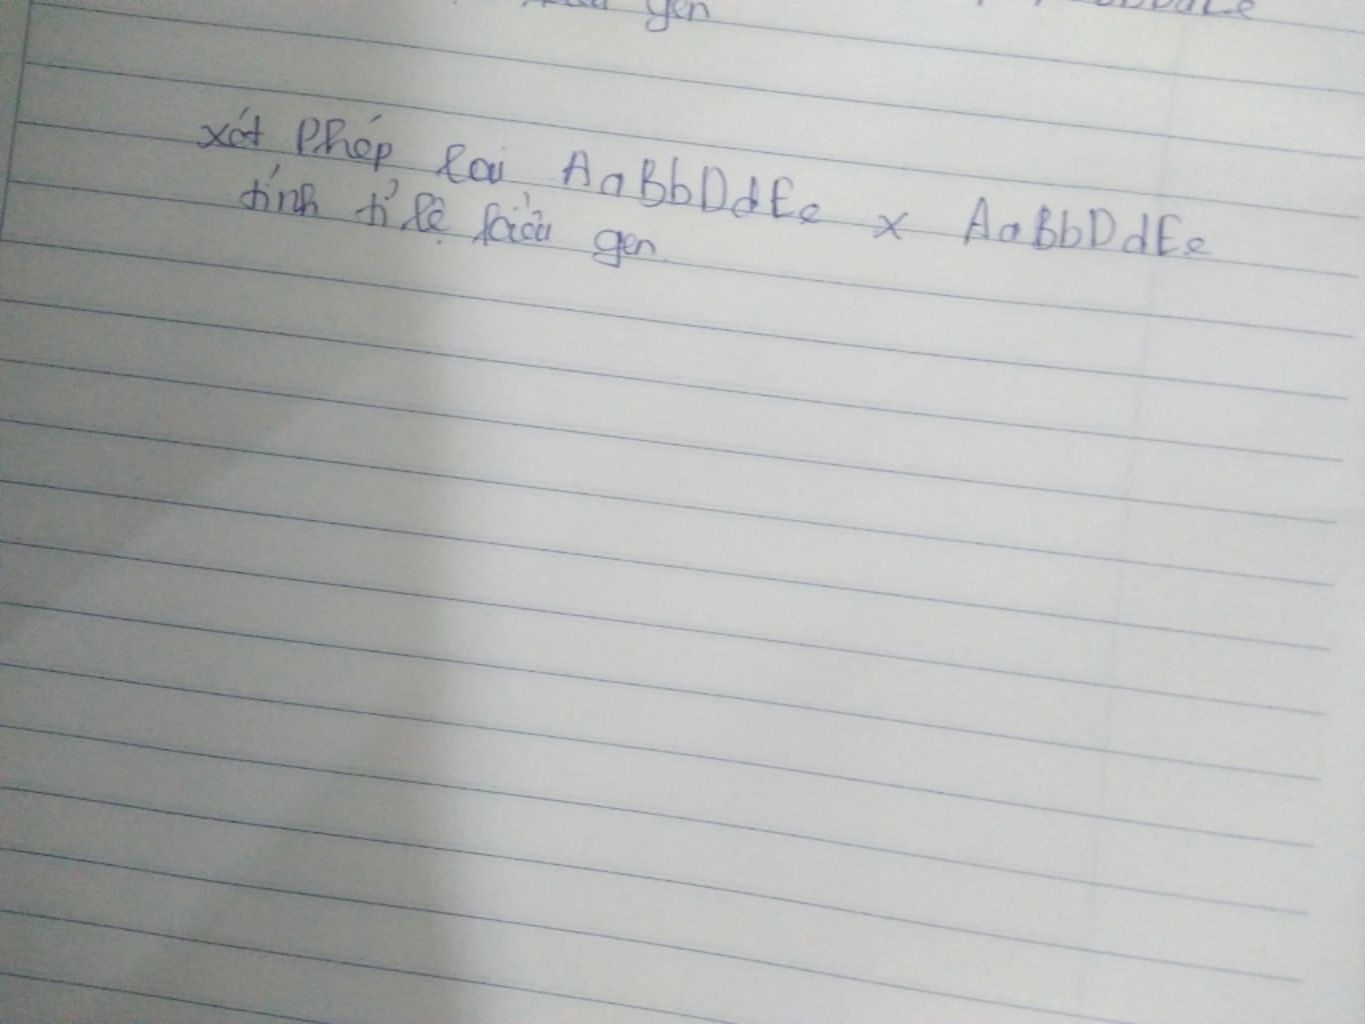 gen
xét Phép lai AaBbDdEe x AaBbDdEe
tính tỉ lệ kiểu gen